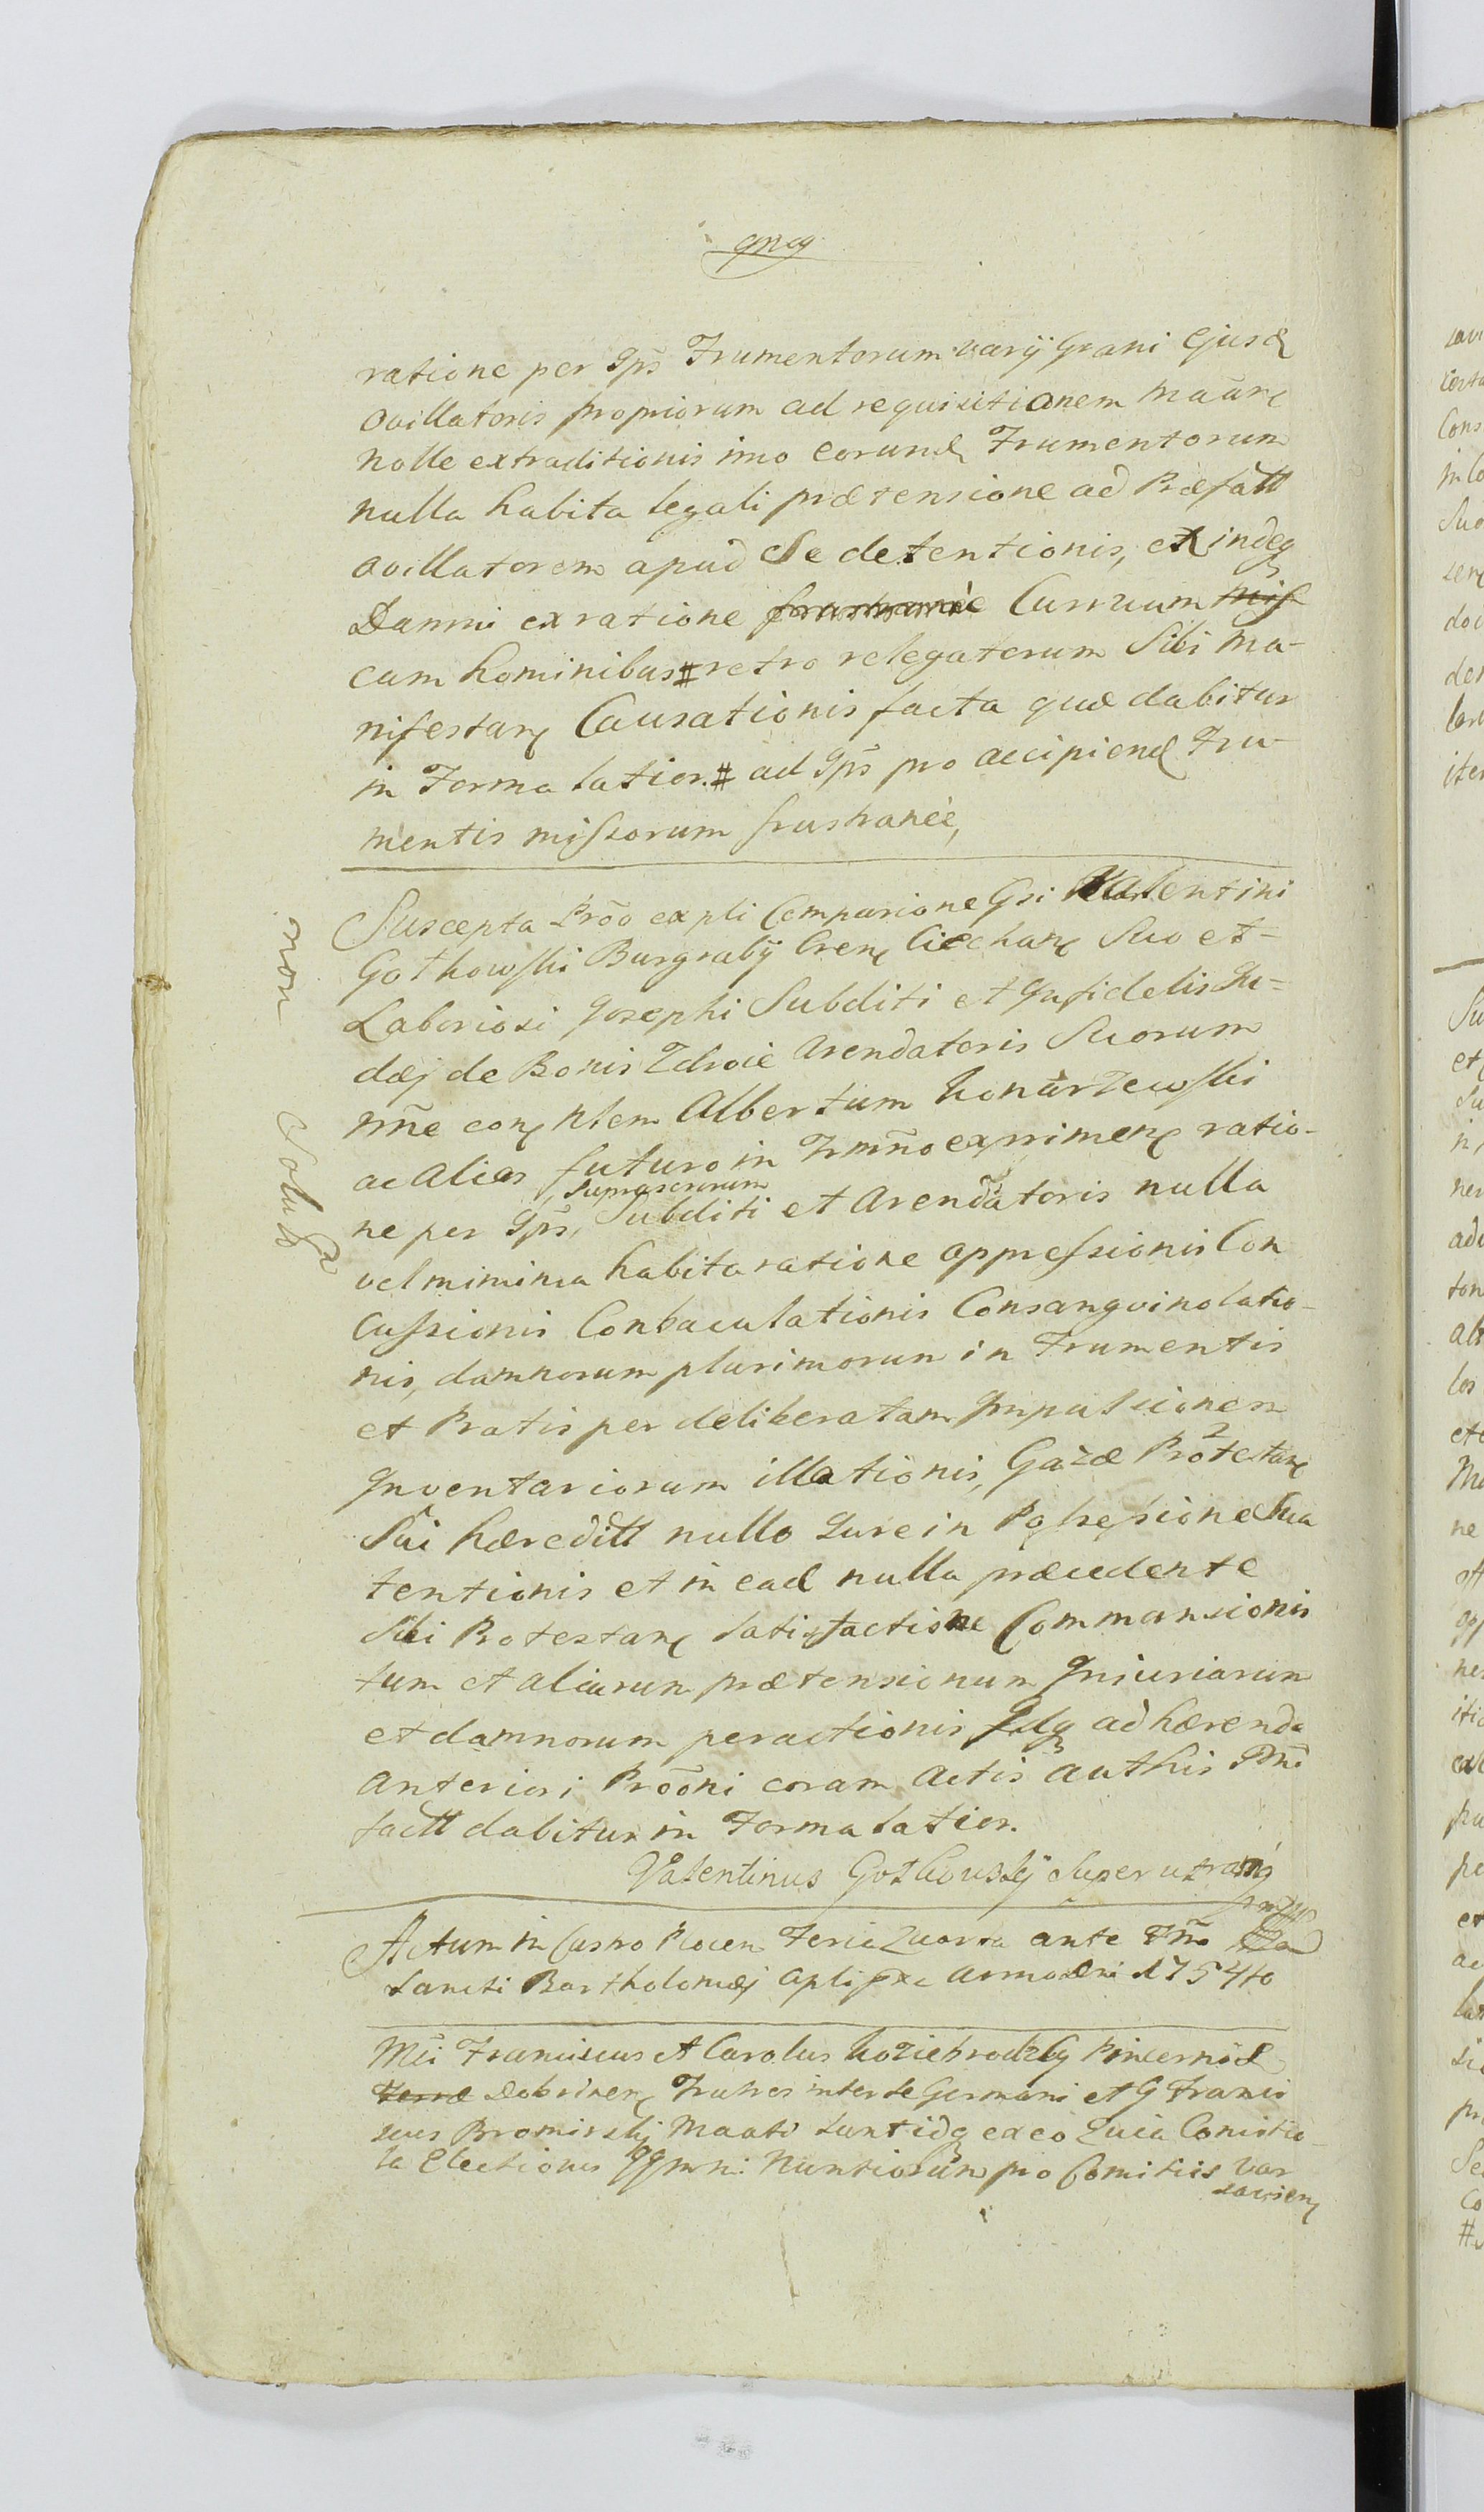 ratione per Ips Frumentorum varÿ Grani Ejusd
ovillatoris propriorum ad requisitionem Maãne
Nolle extraditionis imo eorund Frumentorum
nulla habita legali prætensione ad Præfatt
ovillatorem apud Se detentionis, et indeq
Damni ex ratione frustranèe Curruum Miss
cum hominibus # retro relegatorum Sibi ma-
nifestan Causationis facta quæ dabitur
in Forma latior. # ad Ips pro accipiend Fru-
mentis missorum frustranèe,
Suscepta Prõo ex pli Comparione Gsi Valentini
Gotkowski Burgrabÿ Cren Ciechan Suo et
Laboriosi Josephi Subditi et Infidelis Ju=
dæj de Bonis Zdroie Arendatoris Suorum
nñe con Nlem Albertum Konarzewski
ac alias futuro in Trmño exprimen ratio-
ne per Ips, Suprascriorum Subditi et Arendatoris nulla
vel minima habita ratione oppressionis Con
cussionis Conbaculationis Consanguinolatio-
nis, damnorum plurimorum in Frumentis
et Pratis per deliberatam Impulsionem
Inventariorum illationis, Gazæ Protestan
Sui hæreditt nullo Jure in Possessione Sua
tentionis et in ead nulla præcedente
Sibi Protestan satisfactione Commansionis
tum et aliarum prætensionum Iniuriarum
et damnorum peractionis Idq adhærenda
anteriori Prõõni coram Actis authis Pñi
factt dabitur in Forma latior.
Valentinus Gotkowskÿ Super utramq
Actum in Castro Plocen Feria Quarta ante Fm̃
Sancti Bartholomæj Apli Anno Dni 1754to
Mci Franciscus et Carolus Koziebrodzcy Pincernid
Terræ Dobrinen Fratres inter se Germani et G Francis
cus Bromirskÿ Maati sunt idq ex eo Quia Conistu-
la Electionis Nuntiorum pro Comitiis Var
savien
non Solut